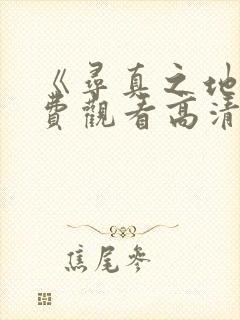 《尋真之地
費觀看高清
焦尾參